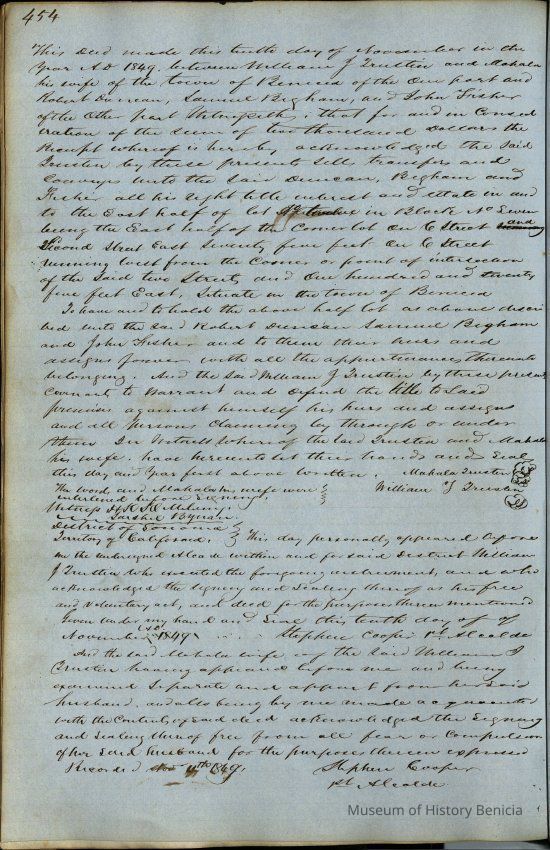 454
This Deed made this tenth day of November in the
Year AD 1849 between William J Trustin and Mahala
his wife of the town of Benicia of the One part and
Robert Duncan, Samuel Bigham, and John Fisher
of the Other part Witnesseth, that for and in Consid
eration of the sum of two thousand Dollars the
Receipt whereof is hereby acknowledged the Said
Trustin by these presents sells transfers and
Conveys unto the said Duncan, Bigham and
Fisher all his right title interest and estate in and
to the East half of lot in Block No Seven
being the East half of the Corner lot On C Street and
Second Street East Seventy five feet On C Street
running West from the Corner or point of intersection
of the Said two Streets and One hundred and twenty
five feet East, Situate in the town of Benicia
To have and to hold the above half lot as above descri
bed unto the Said Robert Duncan Samuel Bigham
and John Fisher and to them their heirs and
assigns forever with all the appurtenances thereunto
belonging. And the Said William J Trustin by these presents
Covenant to Warrant and Defend the title to Said
premises against himself his heirs and assigns
and all persons Claiming by through or under
them In Witness Whereof the said Trustin and Mahala
his wife have hereunto set their hands and Seal
this day and Year first above written. Mahala Trustin
The words and Mahala his wife were William J Trustin
interlined before Signing.
Witness
District of Sonoma
Territory of California. This day personally appeared before
me the undersigned Alcalde within and for said District William
J Trustin who executed the foregoing instrument, and who
acknowledged the signing and Sealing thereof as his free
and Voluntary act, and deed for the purposes therein mentioned
Given under my hand and Seal this tenth day of
November 1849 Stephen Cooper 1st Alcalde
And the said Mahala wife of the Said William J
Trustin having appeared before me and being
examined Separate and appart from her Said
husband, and also being by me made acquainted
with the Contents of Said deed acknowledged the Signing
and Sealing thereof free from all fear or Compulsion
of her Said husband for the purposes therein expressed
Recorded 1849. Stephen Cooper
1st Alcalde
Museum of History Benicia